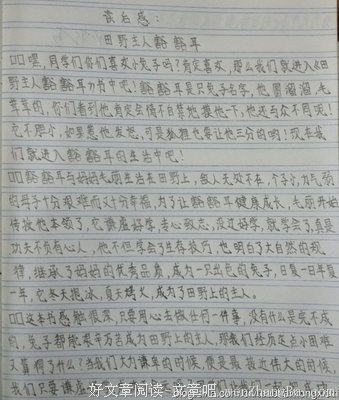 读后感:
田野主人豁豁耳
□□嘿,同学们你们喜欢小兔子吗?肯定喜欢,那么我们就进入《田
野主人豁豁耳》书中吧!豁豁耳是只兔子名字,他圆溜溜,毛
茸茸的,你们看到他肯定会情不自禁地摸他一下,他还与众不同呢!
它不胆小,如果惹他发怒,可是狐狸也要让他三分的哟!现在我
们就进入豁豁耳的生活中吧!
□□豁豁耳与妈妈毛丽生活在田野上,敌人无处不在,个子小,力气弱
的母子十分艰难而又十分幸福,为了让豁豁耳健康成长,毛丽开始
传授他本领了,它谦虚好学,专心致志,没过好学,就学会了,真是
功夫不负有心人,他不但学会了生存技巧,他明白了大自然的规
律,继承了妈妈的优秀品质,成为一只出色的兔子,日复一日年复
一年,它冬天抱冰,夏天烤火,成为了田野上的主人。
□□这本书感触很深,只要用心去做任何一件事,没有什么是完不成
的,兔子都能艰辛万苦成为田野上的主人,那我们经历这点小困难
又算得了什么?当我们大为谦卑的时候,便是最接近伟大的时候,
我们只要谦虚
好文章阅读-文章吧